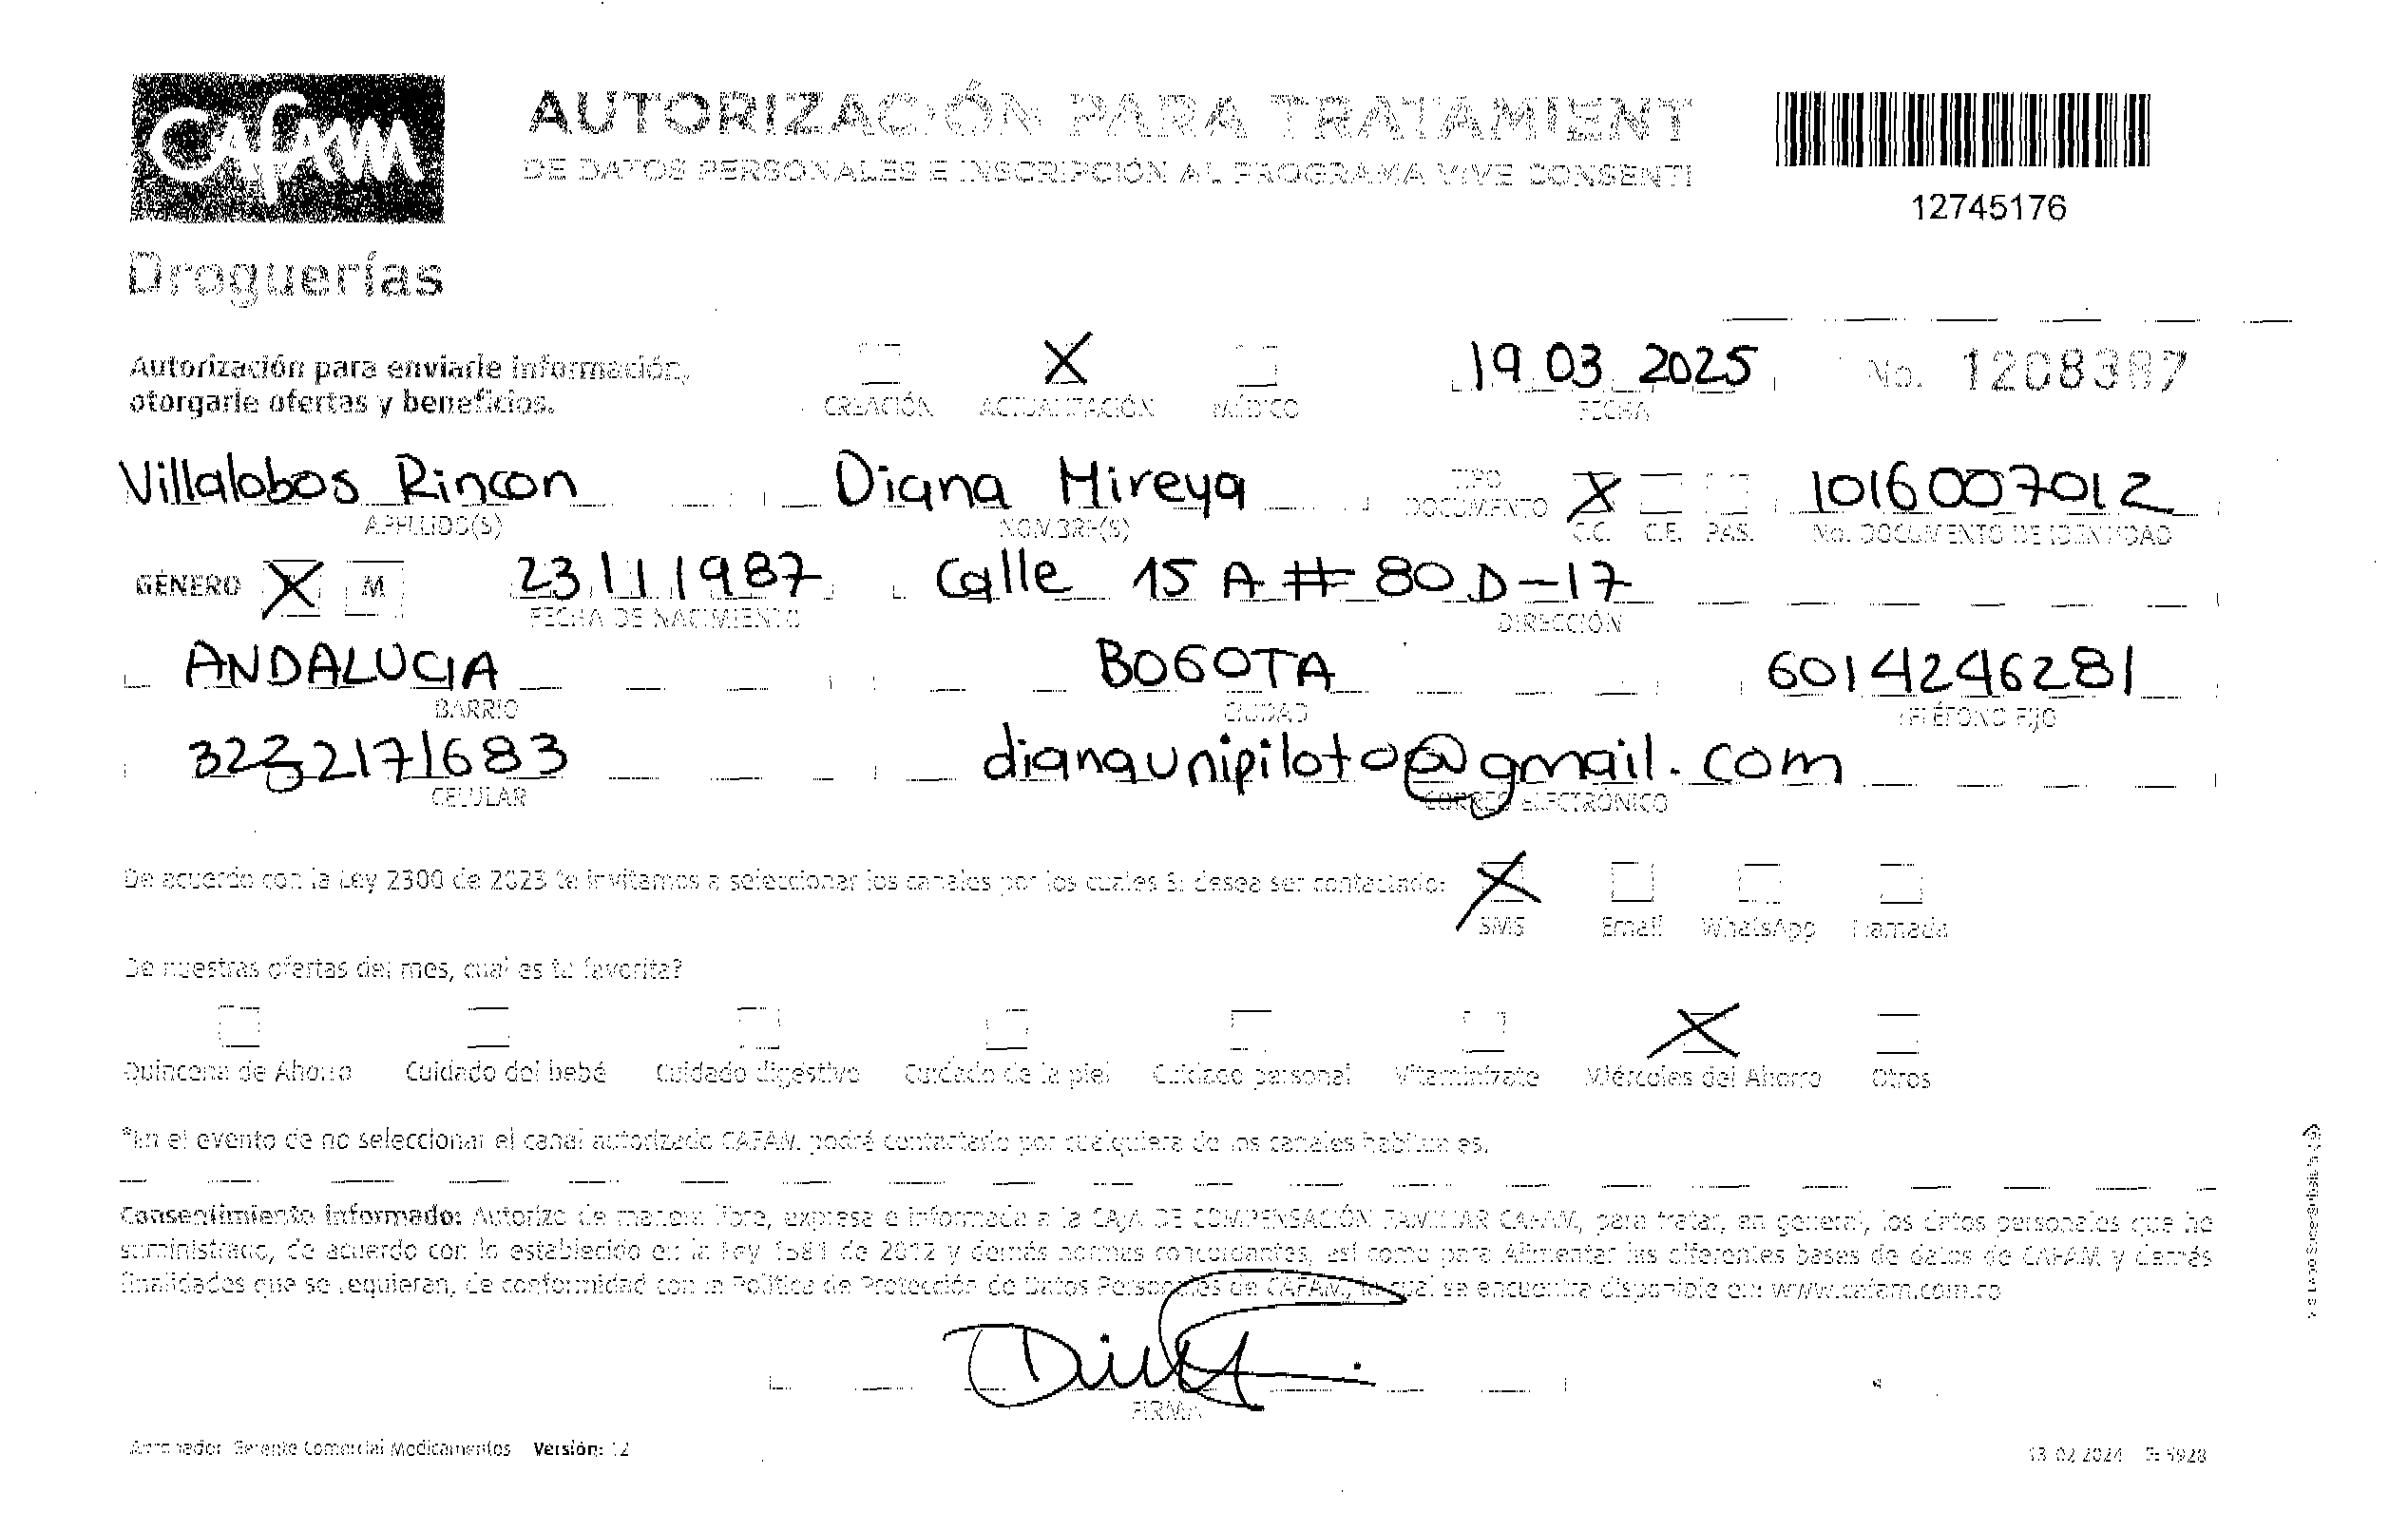 Cafam
Droguerías
AUTORIZACIÓN PARA TRATAMIENT
DE DATOS PERSONALES E INSCRIPCIÓN AL PROGRAMA VIVE CONSENTI
12745176
Autorización para enviarle información,
otorgarle ofertas y beneficios.
X
CREACIÓN ACTUALIZACIÓN MÉDICO
19 03 2025
FECHA
No. 1208387
Villalobos Rincon
APELLIDO(S)
Diana Mireya
NOMBRE(S)
TIPO
DOCUMENTO
X
C.C. C.E. PAS.
1016007012
No. DOCUMENTO DE IDENTIDAD
GÉNERO X M
23 11 1987
FECHA DE NACIMIENTO
Calle 15 A # 80 D - 17
DIRECCIÓN
ANDALUCIA
BARRIO
BOGOTA
CIUDAD
6014246281
TELÉFONO FIJO
3232171683
CELULAR
dianaunipiloto@gmail.com
CORREO ELECTRÓNICO
De acuerdo con la Ley 2300 de 2023 te invitamos a seleccionar los canales por los cuales Si desea ser contactado: X
SMS Email WhatsApp Llamada
De nuestras ofertas del mes, cual es tu favorita?
X
Quincena de Ahorro Cuidado del bebé Cuidado digestivo Cuidado de la piel Cuidado personal Vitaminízate Miércoles del Ahorro Otros
*En el evento de no seleccionar el canal autorizado CAFAM, podré contactarlo por cualquiera de los canales habituales.
Consentimiento informado: Autorizo de manera libre, expresa e informada a la CAJA DE COMPENSACIÓN FAMILIAR CAFAM, para tratar, en general, los datos personales que he
suministrado, de acuerdo con lo establecido en la Ley 1581 de 2012 y demás normas concordantes, así como para Alimentar las diferentes bases de datos de CAFAM y demás
finalidades que se requieran, de conformidad con la Política de Protección de Datos Personales de CAFAM, la cual se encuentra disponible en: www.cafam.com.co
FIRMA
Aprobador Gerente Comercial Medicamentos Versión: 12
13 02 2024